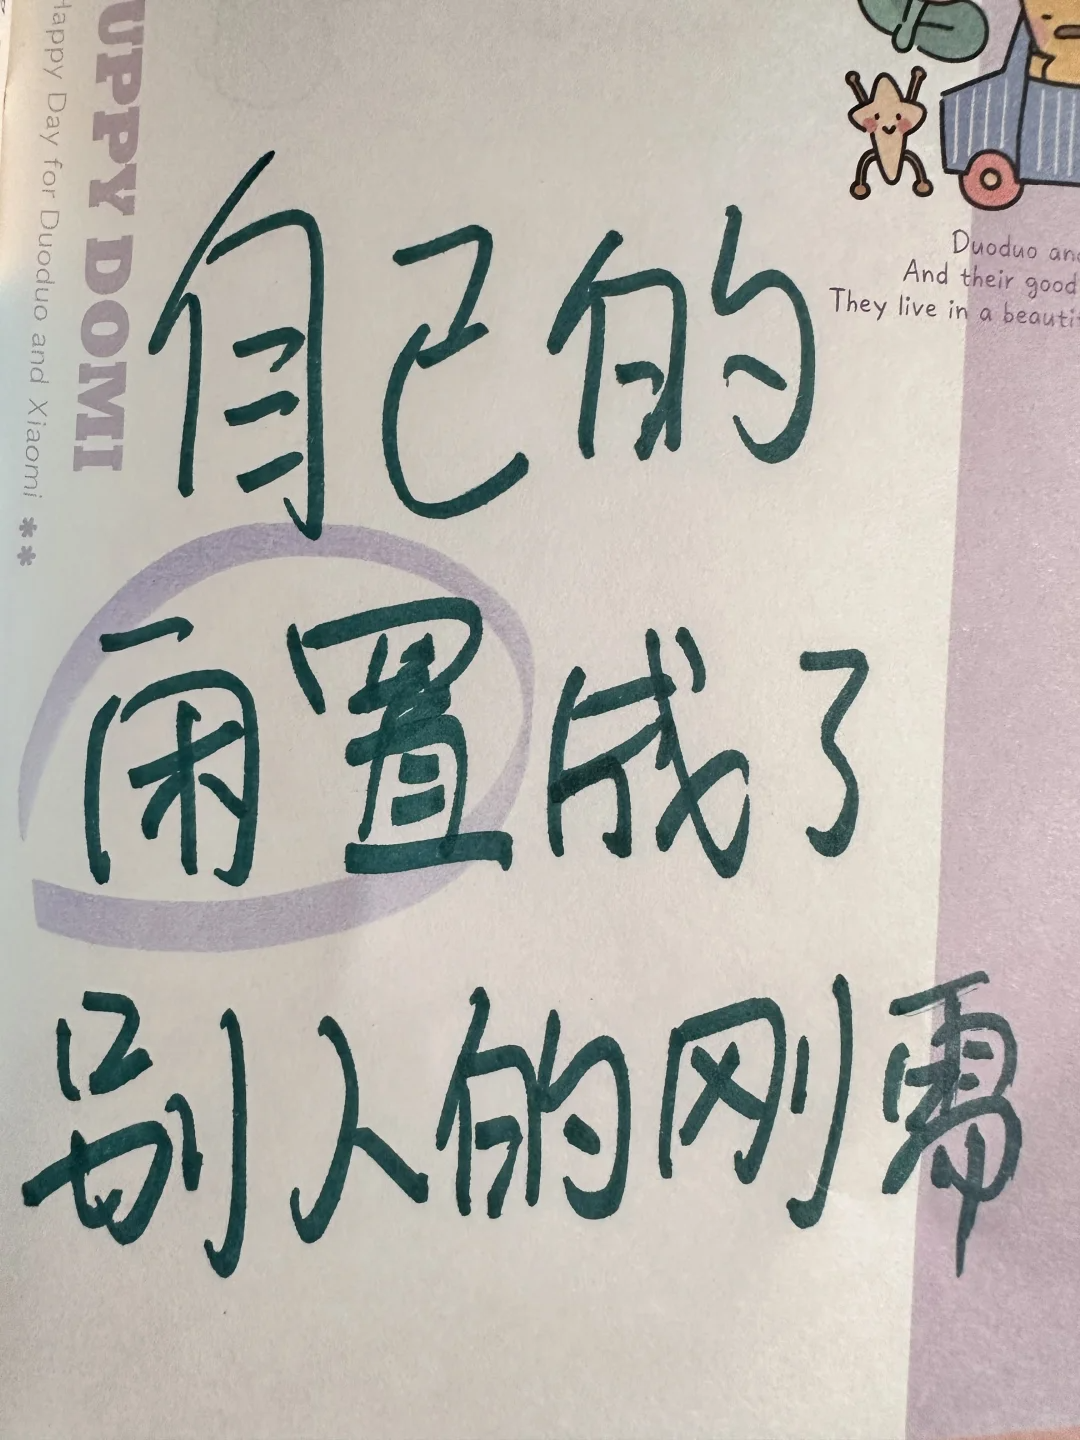 UPPY DOMI
Happy Day for Duoduo and Xiaomi **
Duoduo and
And their good
They live in a beauti
自己的
闲置成了
别人的刚需